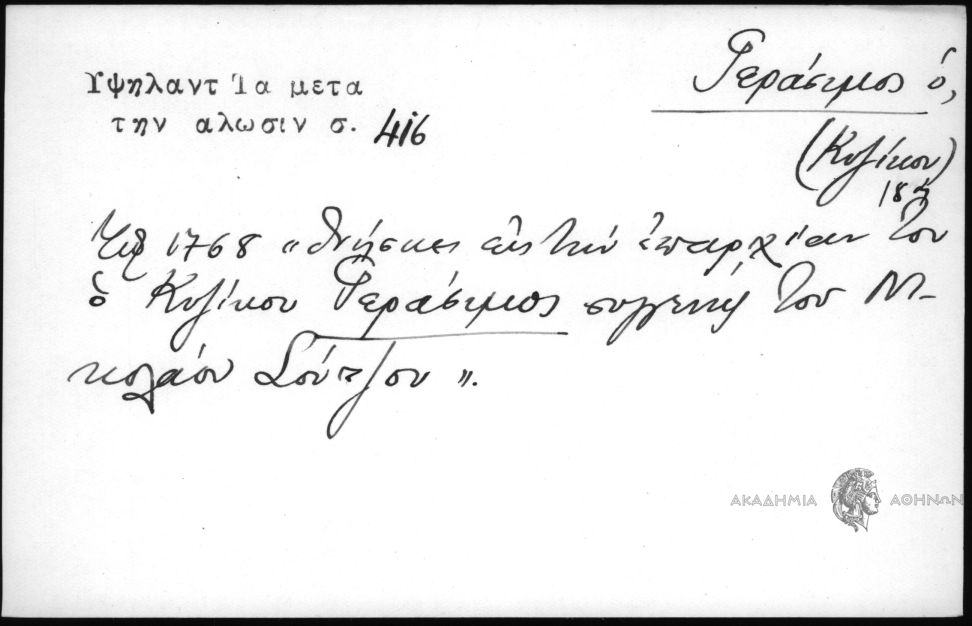 Υψηλαντ Ία μετα
την αλωσιν σ. 416
Γεράσιμος ὁ,
(Κυζίκου)
1768 «θνήσκει εἰς τὴν ἐπαρχίαν του
ὁ Κυζίκου Γεράσιμος συγγενὴς τοῦ Νι-
κολάου Σούτζου».
ΑΚΑΔΗΜΙΑ ΑΘΗΝΩΝ